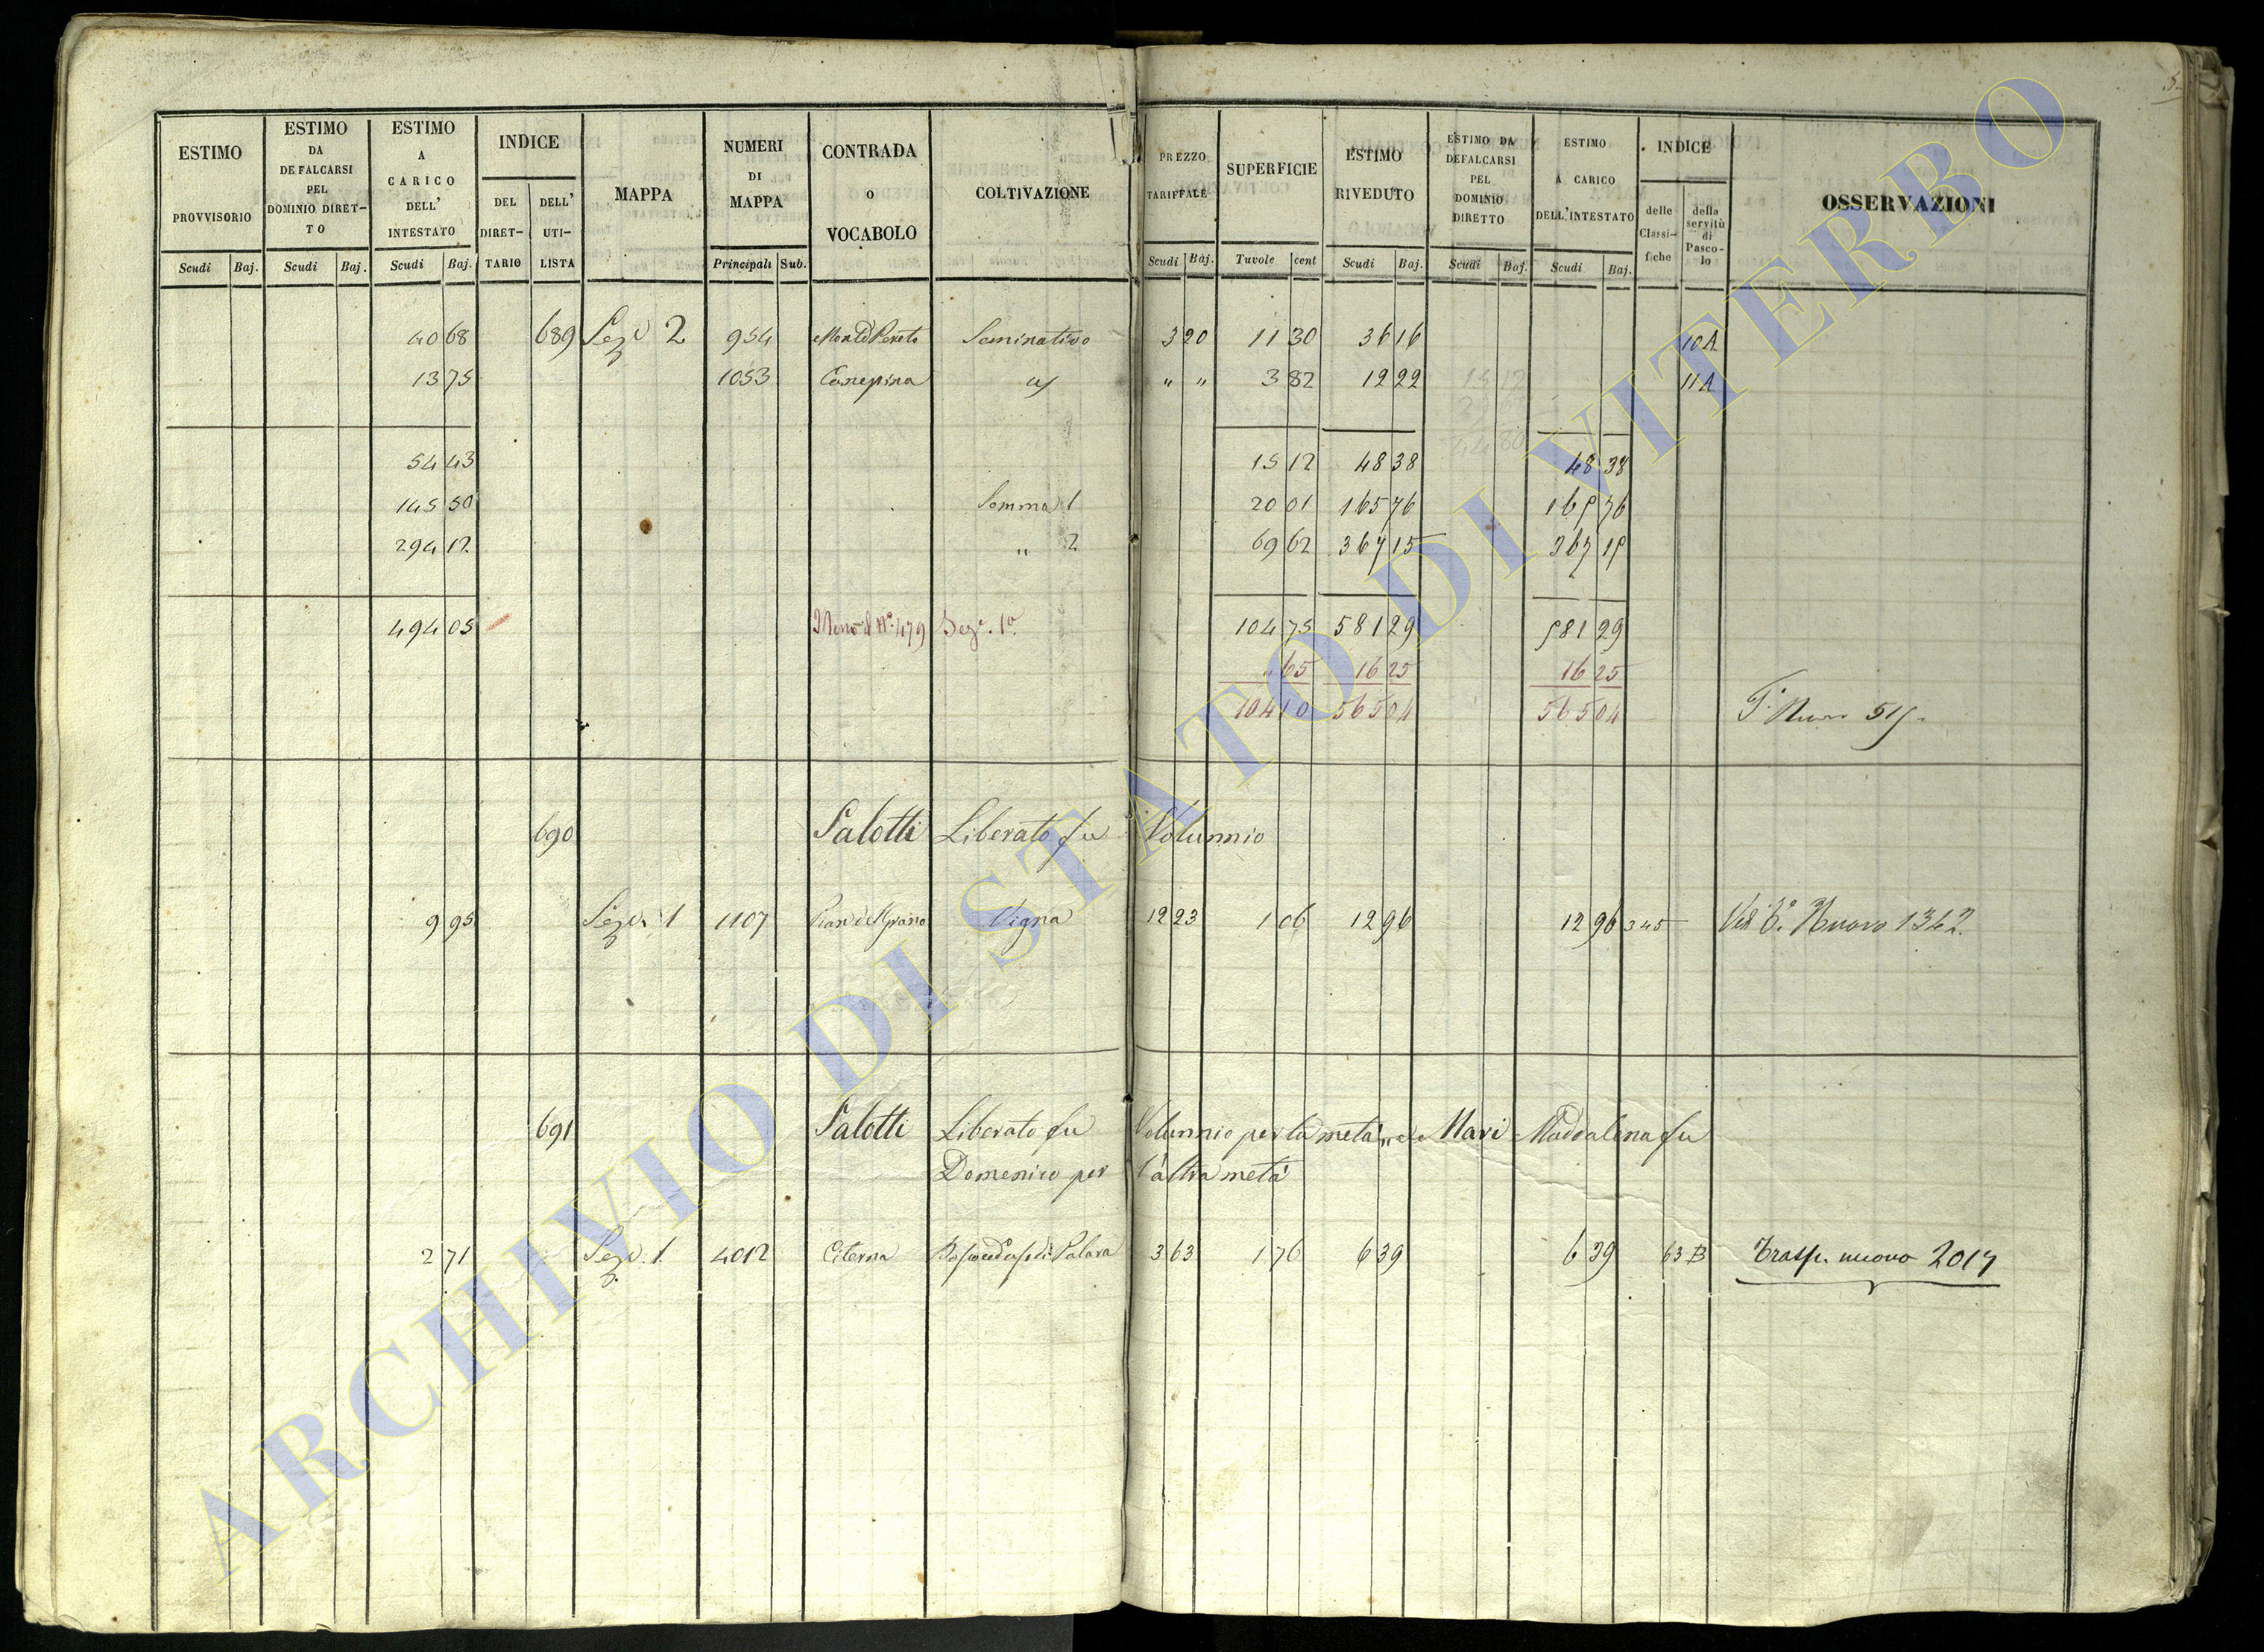 ESTIMO PROVVISORIO
ESTIMO DA DEFALCARSI PEL DOMINIO DIRET-TO
ESTIMO A CARICO DELL' INTESTATO
INDICE
DEL DIRET-TARIO
DELL' UTI-LISTA
MAPPA
NUMERI DI MAPPA
CONTRADA O VOCABOLO
COLTIVAZIONE
PREZZO TARIFFALE
SUPERFICIE
ESTIMO RIVEDUTO
ESTIMO DA DEFALCARSI PEL DOMINIO DIRETTO
ESTIMO A CARICO DELL'INTESTATO
INDICE
delle Classi-fiche
della servitù di Pasco-lo
OSSERVAZIONI
Scudi Baj. Scudi Baj. Scudi Baj. Principali Sub. Scudi Baj. Tavole cent Scudi Baj. Scudi Baj. Scudi Baj.
40 68 689 2 954 Seminativo 3 20 11 30 36 16 10A
13 75 1053 Canepina " " 3 82 12 22 11A
54 43 15 12 48 38 48 38
145 50 Somma 1 20 01 165 76 165 76
294 12 " 2 69 62 367 15 367 15
494 05 N°. 479 Sez. 1ª 104 75 581 29 581 29
" 65 16 25 16 25
104 10 565 04 565 04
690 Salotti Liberato fu Volunnio
9 95 1 1107 Vigna 12 23 1 06 12 96 12 96 345 Nuovo 1342
691 Salotti Liberato fu Volunnio per la metà, e Mari Maddalena fu
Domenico per l'altra metà
2 71 1 4012 Citerna 3 63 1 76 6 39 6 39 63 B Trasp. nuovo 2017
ARCHIVIO DI STATO DI VITERBO